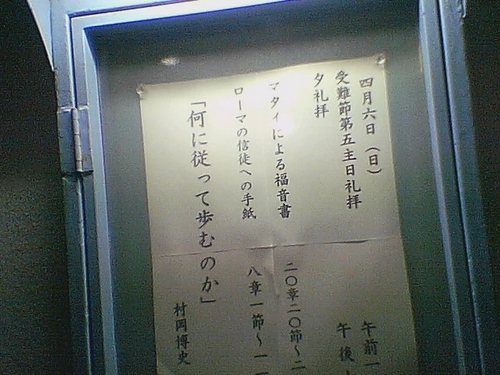 四月六日（日）
受難節第五主日礼拝 午前一
夕礼拝 午後
マタイによる福音書 二〇章二〇節〜二
ローマの信徒への手紙 八章一節〜一
「何に従って歩むのか」
村岡博史